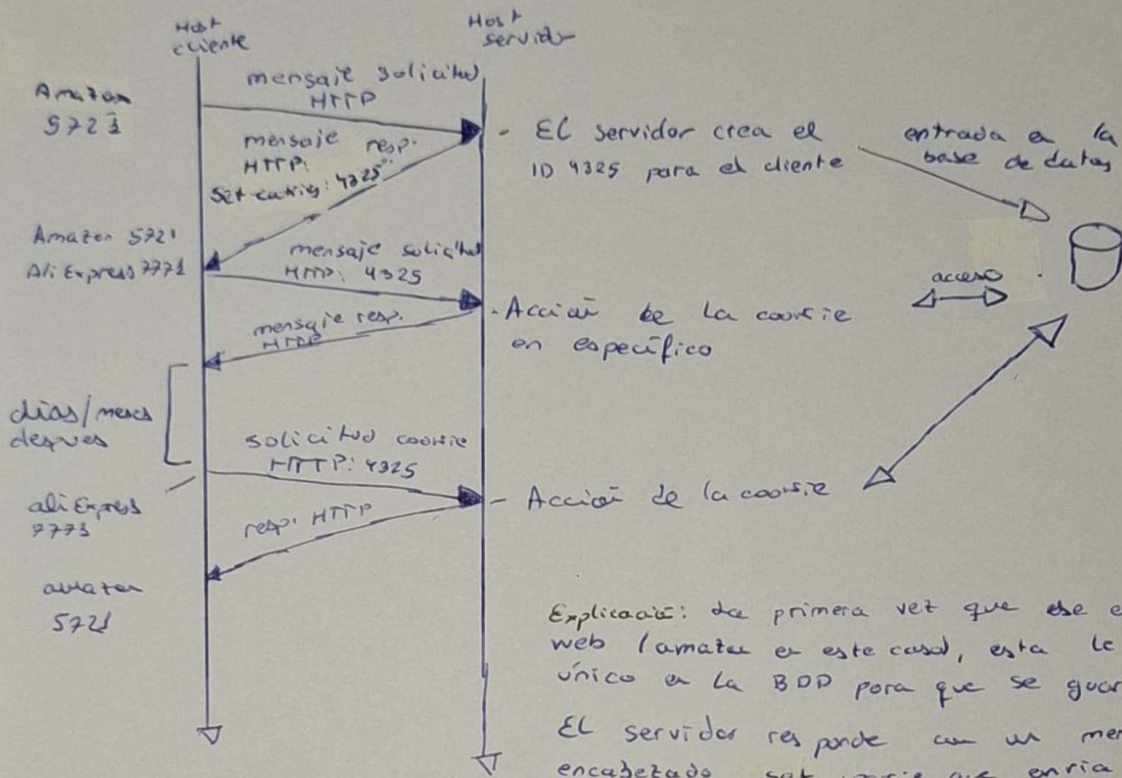 Host
cliente
Host
servidor
Amazon
5721
mensaje solicitud
HTTP
- El servidor crea el
ID 4325 para el cliente
entrada en la
base de datos
mensaje resp.
HTTP:
4325
Amazon 5721
AliExpress 7771
mensaje solicitud
HTTP: 4325
- Acción de la cookie
en específico
acceso
mensaje resp.
HTTP
días/meses
después
solicitud cookie
HTTP: 4325
- Acción de la cookie
aliExpress
7771
resp. HTTP
amazon
5721
Explicación: La primera vez que ese
web (amazon en este caso), esta le
único en la BDD para que se guar
El servidor responde con un men
encabezado set cookie que envía